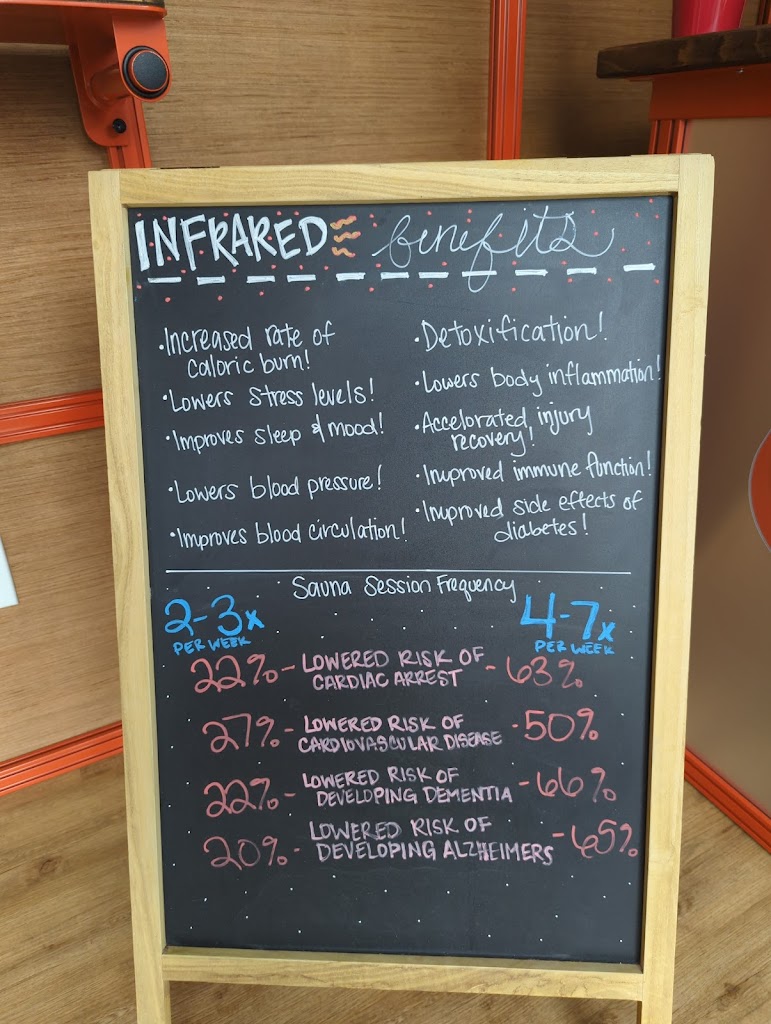 INFRARED benefits
• Increased rate of
caloric burn!
• Lowers stress levels!
• Improves sleep & mood!
• Lowers blood pressure!
• Improves blood circulation!
• Detoxification!
• Lowers body inflammation!
• Accelorated injury
recovery!
• Improved immune function!
• Improved side effects of
diabetes!
Sauna Session Frequency
2-3x
PER WEEK
4-7x
PER WEEK
22% - LOWERED RISK OF
CARDIAC ARREST - 63%
27% - LOWERED RISK OF
CARDIOVASCULAR DISEASE - 50%
22% - LOWERED RISK OF
DEVELOPING DEMENTIA - 66%
20% - LOWERED RISK OF
DEVELOPING ALZHEIMERS - 65%